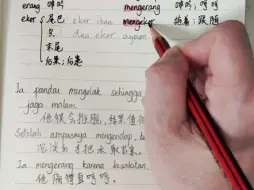 erang 呻吟 mengerang 呻吟, 哼哼
ekor 尾巴 ekor ikan mengekor 拖着; 跟随
只 dua ekor ayam
末尾
后果; 后患
Ia pandai mengelak sehingga
jaga malam.
他很会推脱, 结果值
Setelah ampasnya mengendap, b
沉淀
Ia mengerang karena kesakitan
他痛得直哼哼.